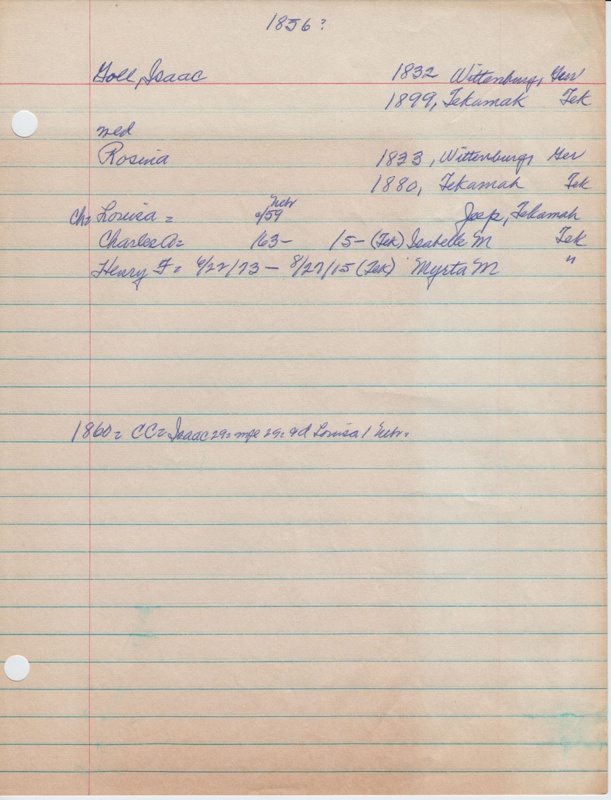 1856?
Goll, Isaac 1832 Wittenburg, Ger
1899, Tekamah Tek
med
Rosina 1833, Wittenburg, Ger
1880, Tekamah Tek
Nebr
ch= Louisa = /59 Tekamah
Charles A= /63- 15- (Tek) Isabelle M Tek
Henry F= 6/22/73 - 8/27/15 (Tek) Myrta M "
1860= CC= Isaac 29= wife 29= Louisa 1 Nebr.